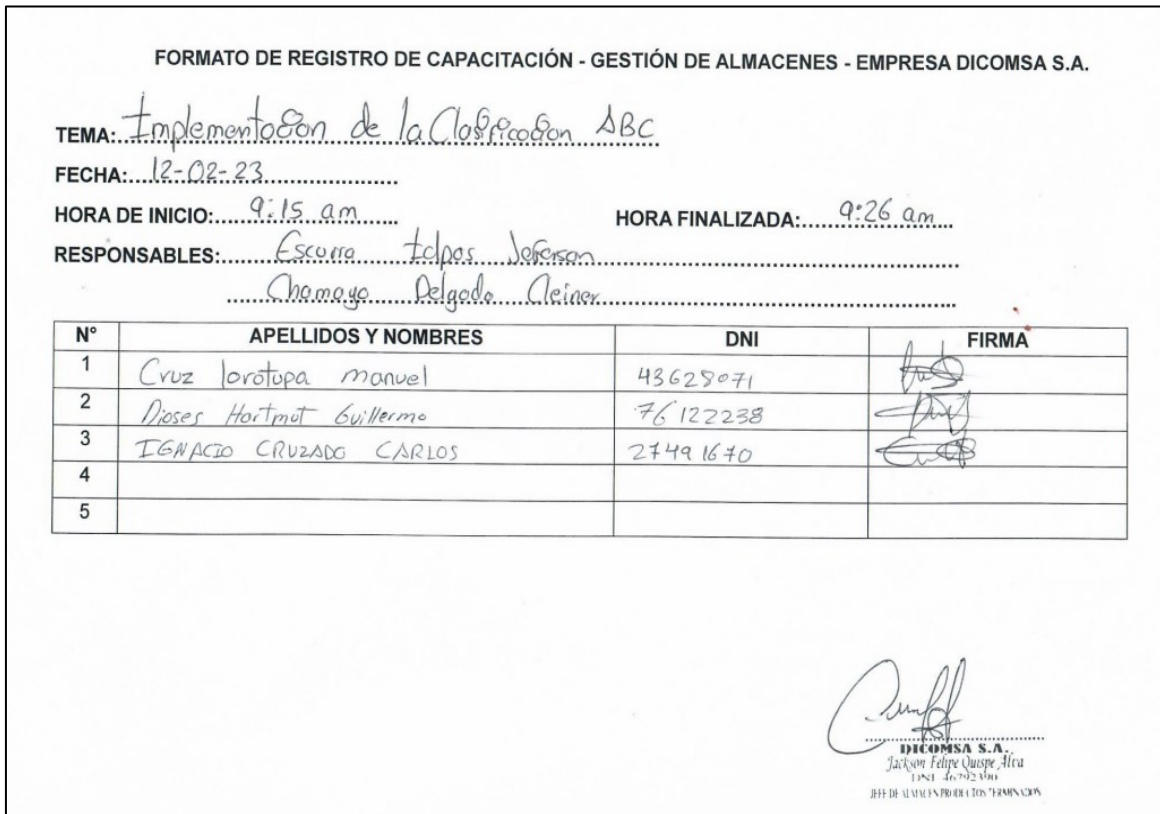 FORMATO DE REGISTRO DE CAPACITACIÓN - GESTIÓN DE ALMACENES - EMPRESA DICOMSA S.A.
TEMA: Implementación de la Clasificación ABC
FECHA: 12-02-23
HORA DE INICIO: 9:15 am HORA FINALIZADA: 9:26 am
RESPONSABLES: Escurra Jeferson
Chamayo Delgado Cleiner
N° APELLIDOS Y NOMBRES DNI FIRMA
1 Cruz manuel 43628071
2 Dioses Hartmut Guillermo 76122238
3 IGNACIO CRUZADO CARLOS 27491670
4
5
DICOMSA S.A.
Jackson Felipe Quispe Alva
DNI 46792390
JEFE DE ALMACEN PRODUCTOS TERMINADOS